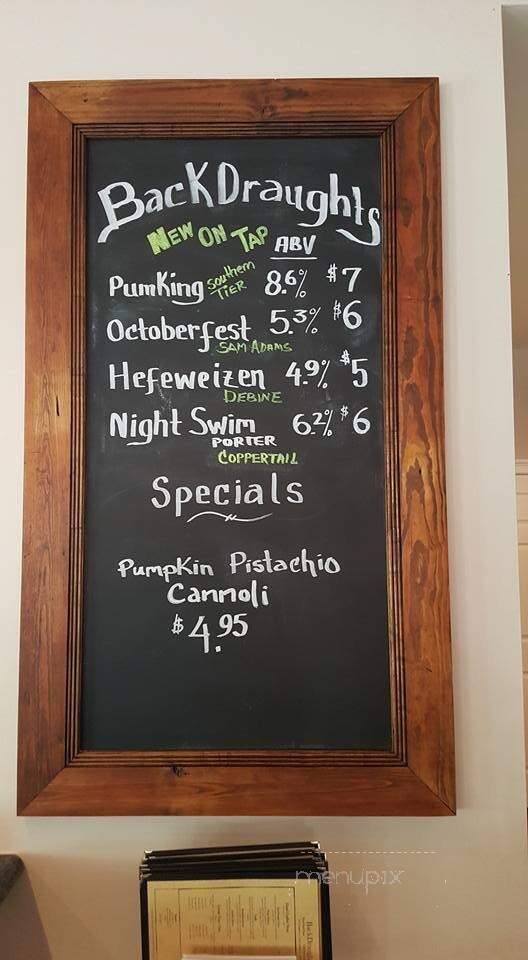 BackDraughts
NEW ON TAP
ABV
PumKing Southern TIER 8.6% $7
Octoberfest 5.3% $6
SAM ADAMS
Hefeweizen 4.9% $5
DEBINE
Night Swim 6.2% $6
PORTER
COPPERTAIL
Specials
Pumpkin Pistachio
Cannoli
$4.95
menupix